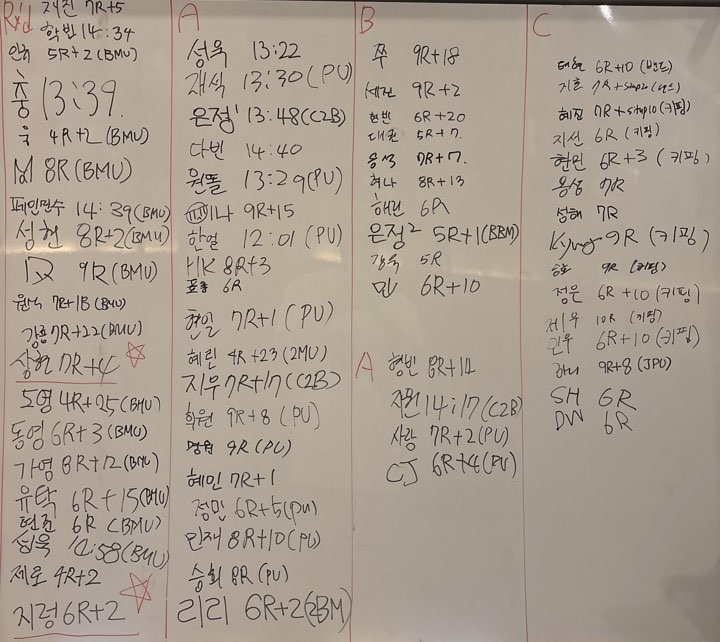 Rx'd
재진 7R+5
학빈 14:34
5R+2 (BMU)
충 13:39
욱 4R+2 (BMU)
8R (BMU)
페인민수 14:39 (BMU)
성현 8R+2 (BMU)
9R (BMU)
원석 7R+18 (BMU)
강용 7R+22 (BMU)
상현 7R+4
도영 4R+25 (BMU)
동영 6R+3 (BMU)
가영 8R+12 (BMU)
유탁 6R+15 (BMU)
현준 6R (BMU)
성욱 12:58 (BMU)
제로 4R+2
지령 6R+2
A
성욱 13:22
재식 13:30 (PU)
은정' 13:48 (C2B)
다빈 14:40
원돌 13:29 (PU)
미나 9R+15
한얼 12:01 (PU)
HK 8R+3
표총 6R
현일 7R+1 (PU)
혜린 4R+23 (2MU)
지우 7R+17 (C2B)
학원 9R+8 (PU)
9R (PU)
혜민 7R+1
정민 6R+5 (PU)
민재 8R+10 (PU)
승희 8R (PU)
리리 6R+2 (2BM)
B
쭈 9R+18
세진 9R+2
현빈 6R+20
대권 5R+7
용석 7R+7
혜나 8R+13
해린 6R
은정² 5R+1 (BBM)
강욱 5R
민 6R+10
A
형빈 8R+12
지원 14:17 (C2B)
사랑 7R+2 (PU)
CJ 6R+4 (PU)
C
태현 6R+10 (밴드)
지호 7R+step2 (밴드)
혜진 7R+step10 (키핑)
지선 6R (키핑)
한민 6R+3 (키핑)
용성 7R
성해 7R
Kyung 9R (키핑)
9R (키핑)
정은 6R+10 (키핑)
제우 10R (키핑)
민우 6R+10 (키핑)
9R+8 (JPU)
SH 6R
DW 6R